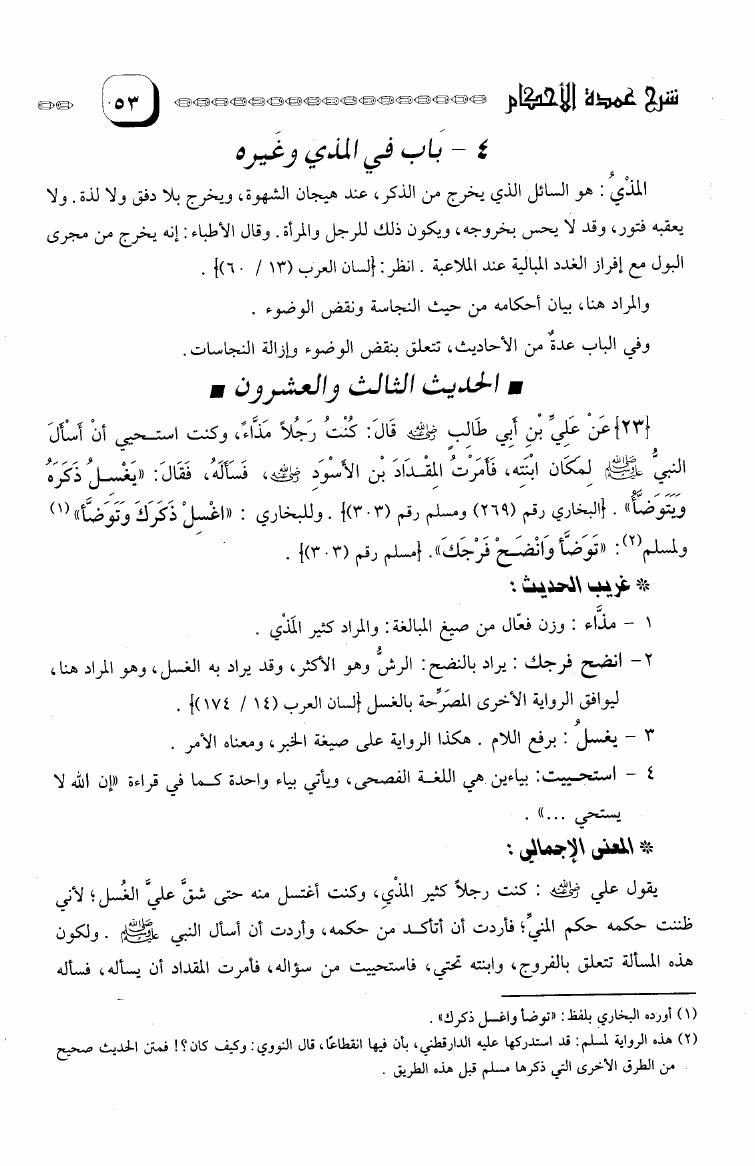 شرح عمدة الأحكام
٥٣
٤ - بَاب في المذي وغَيره
المذْيُ : هو السائل الذي يخرج من الذكر، عند هيجان الشهوة، ويخرج بلا دفق ولا لذة. ولا
يعقبه فتور، وقد لا يحس بخروجه، ويكون ذلك للرجل والمرأة. وقال الأطباء: إنه يخرج من مجرى
البول مع إفراز الغدد المبالية عند الملاعبة . انظر: {لسان العرب (١٣ / ٦٠)} .
والمراد هنا، بيان أحكامه من حيث النجاسة ونقض الوضوء .
وفي الباب عدةٌ من الأحاديث، تتعلق بنقض الوضوء وإزالة النجاسات.
■ الحديث الثالث والعشرون ■
{٢٣}عَنْ عَلِيِّ بْنِ أَبِي طَالِبٍ رضي الله عنه قَالَ: كُنْتُ رَجُلاً مَذَّاءً، وكنت استحيي أنْ أَسْأَلَ
النبيَّ ﷺ لِمَكَان ابْنَتِه، فَأَمَرْتُ المِقْدَادَ بْنَ الأَسْوَد رضي الله عنه، فَسَألَهُ، فَقَالَ: «يَغْسلُ ذَكَرَهُ
وَيَتَوَضَّأُ» . {البخاري رقم (٢٦٩) ومسلم رقم (٣٠٣)} . وللبخاري : «اغْسِلْ ذَكَرَكَ وَتَوَضَّأ» (١)
ولمسلم (٢): «تَوَضَّأ وَانْضَحْ فَرْجَكَ». {مسلم رقم (٣٠٣)} .
* غريب الحديث :
١ - مذَّاء : وزن فعّال من صيغ المبالغة: والمراد كثير المَذْي .
٢- انضح فرجك : يراد بالنضح: الرشُّ وهو الأكثر، وقد يراد به الغسل، وهو المراد هنا،
ليوافق الرواية الأخرى المصَرِّحة بالغسل {لسان العرب (١٤ / ١٧٤)} .
٣ - يغسلُ : برفع اللام . هكذا الرواية على صيغة الخبر، ومعناه الأمر .
٤ - استحييت: بياءين هي اللغة الفصحى، ويأتي بياء واحدة كما في قراءة «إن الله لا
يستحي ...» .
* المعنى الإجمالي :
يقول علي رضي الله عنه : كنت رجلاً كثير المذْيِ، وكنت أغتسل منه حتى شقَّ عليَّ الغُسل؛ لأني
ظننت حكمه حكم المنيِّ؛ فأردت أن أتأكد من حكمه، وأردت أن أسأل النبي ﷺ . ولكون
هذه المسألة تتعلق بالفروج، وابنته تحتي، فاستحييت من سؤاله، فأمرت المقداد أن يسأله، فسأله
(١) أورده البخاري بلفظ: «توضأ واغسل ذكرك» .
(٢) هذه الرواية لمسلم: قد استدركها عليه الدارقطني، بأن فيها انقطاعًا، قال النووي: وكيف كان؟! فمتن الحديث صحيح
من الطرق الأخرى التي ذكرها مسلم قبل هذه الطريق .